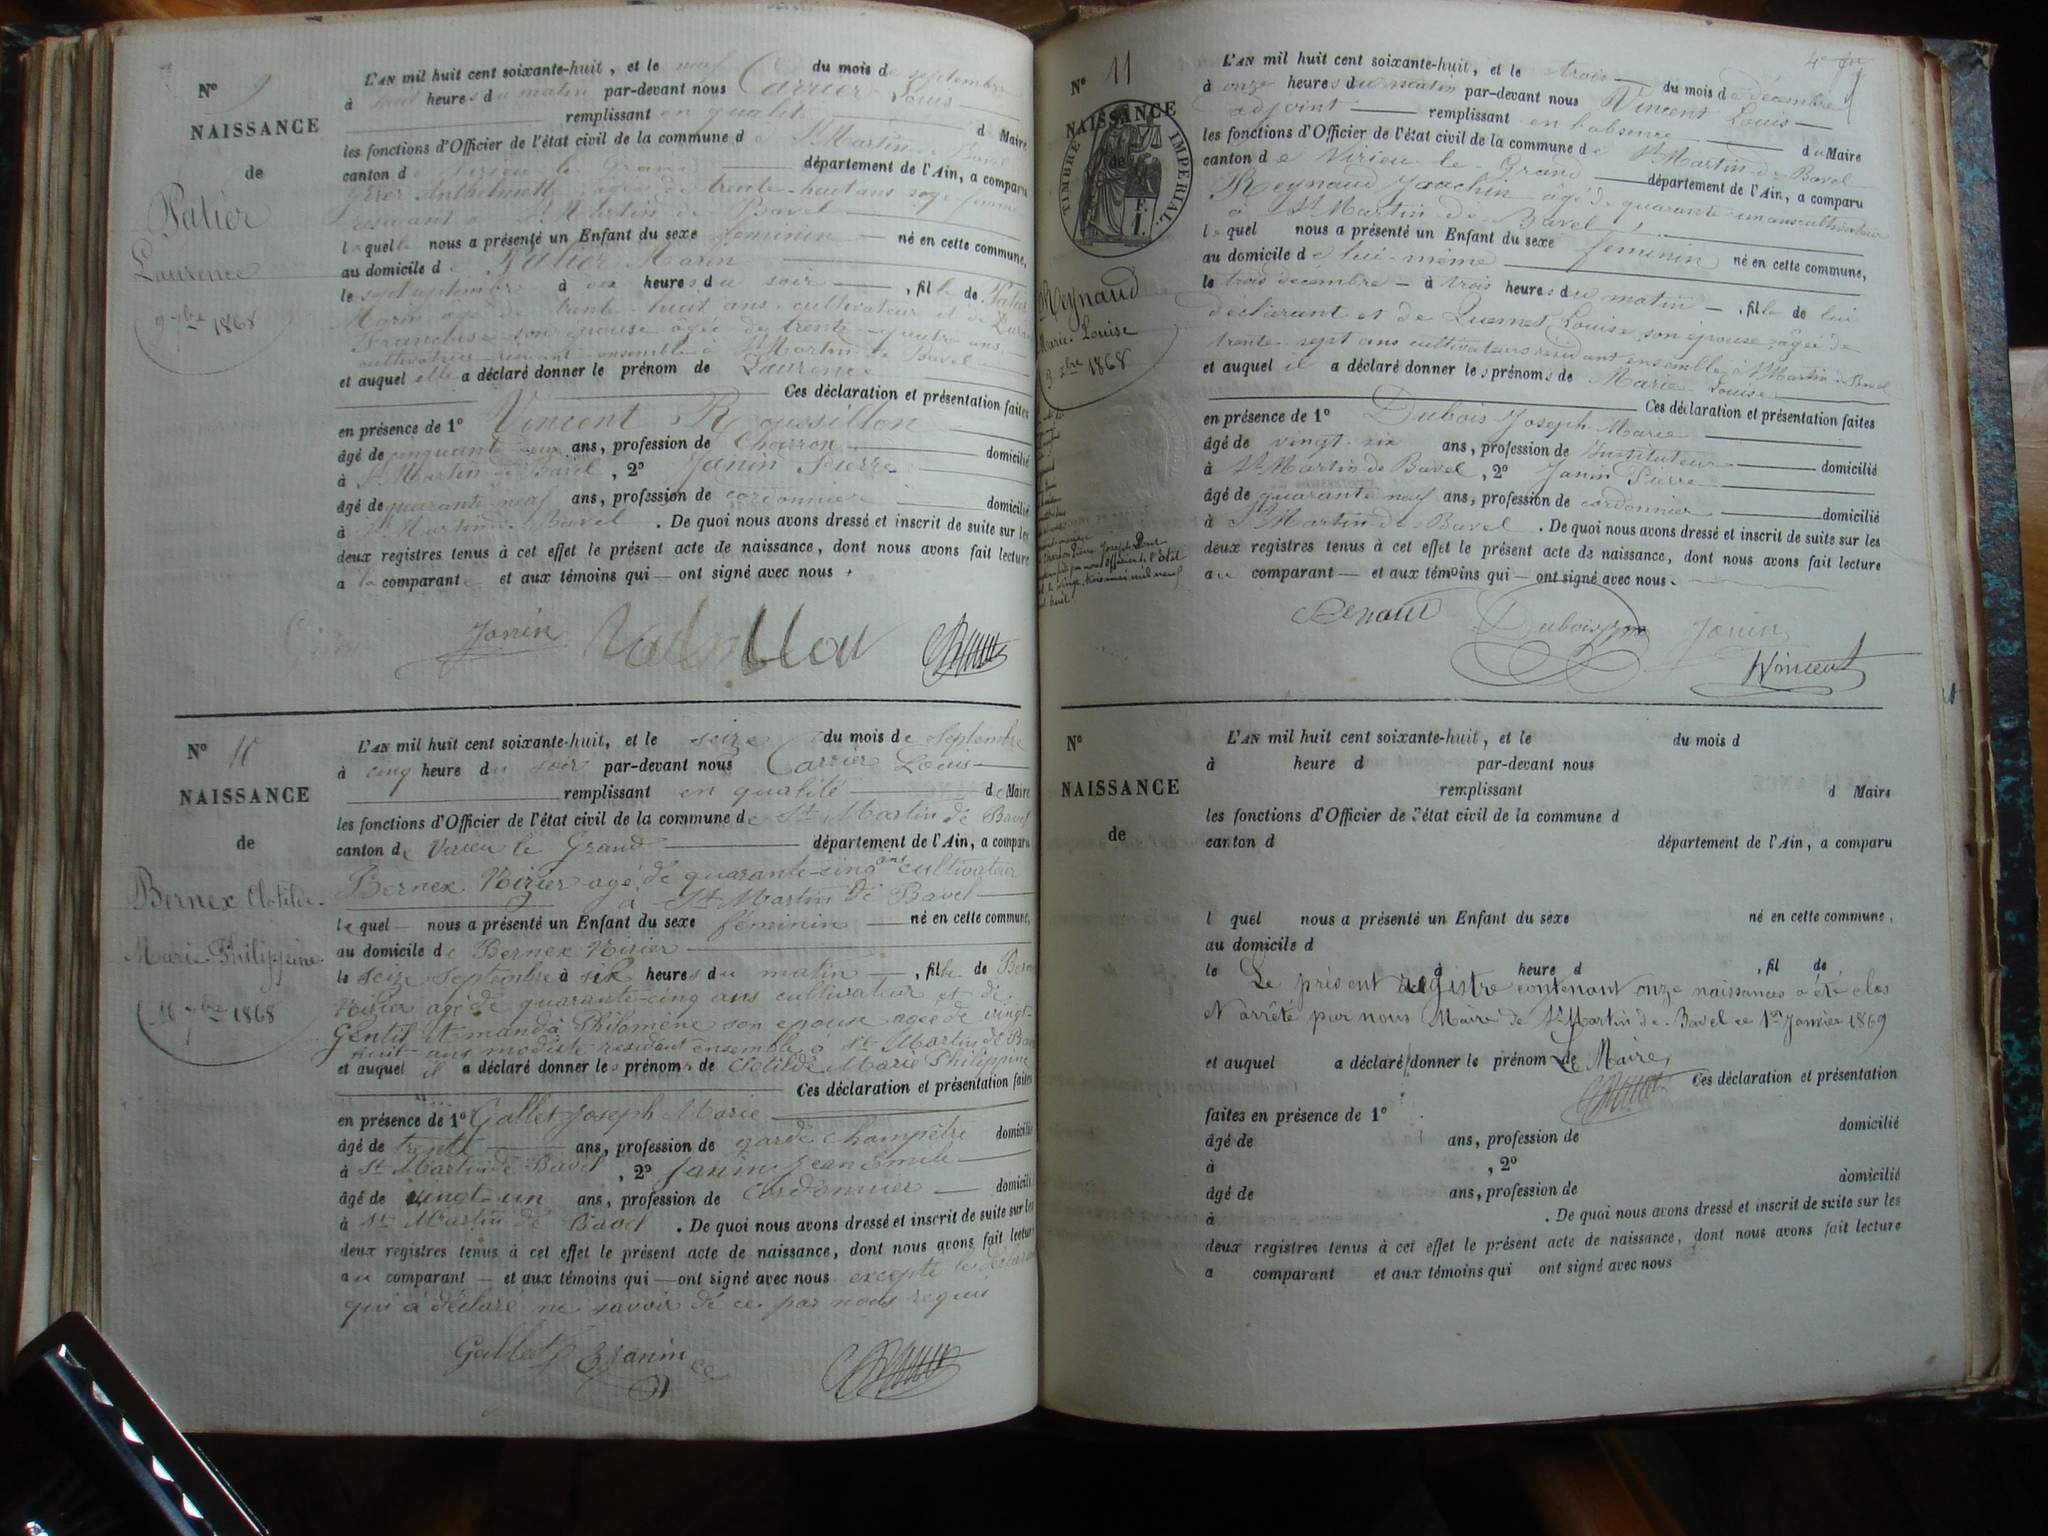 N° 9
NAISSANCE
de
Patier
Laurence
9 7bre 1868
L'AN mil huit cent soixante-huit, et le neuf du mois de septembre
à huit heures du matin par-devant nous Carrier Louis
remplissant en qualité d Maire
les fonctions d'Officier de l'état civil de la commune de St Martin de Bavel
canton de Virieu le Grand département de l'Ain, a comparu
Anthelmette agée de trente-huit ans sage-femme
St Martin de Bavel
laquelle nous a présenté un Enfant du sexe féminin né en cette commune,
au domicile de Patier Marin
le sept septembre à heures du soir, fille de Patier
Marin age de trente huit ans cultivateur et de
Françoise son épouse agée de trente-quatre ans
cultivatrice résidant ensemble à St Martin de Bavel
et auquel elle a déclaré donner le prénom de Laurence
Ces déclaration et présentation faites
en présence de 1° Vincent Roussillon
âgé de cinquante ans, profession de Charron domicilié
à St Martin de Bavel, 2° Janin Pierre
âgé de quarante-neuf ans, profession de cordonnier domicilié
à St Martin de Bavel. De quoi nous avons dressé et inscrit de suite sur les
deux registres tenus à cet effet le présent acte de naissance, dont nous avons fait lecture
a la comparante et aux témoins qui ont signé avec nous.
Janin
N° 10
NAISSANCE
de
Bernex Clotilde
Marie Philippine
16 7bre 1868
L'AN mil huit cent soixante-huit, et le seize du mois de Septembre
à cinq heure du soir par-devant nous Carrier Louis
remplissant en qualité de Maire
les fonctions d'Officier de l'état civil de la commune de St Martin de Bavel
canton de Virieu le Grand département de l'Ain, a comparu
Bernex Vivier agé de quarante-cinq ans cultivateur
à St Martin de Bavel
lequel nous a présenté un Enfant du sexe féminin né en cette commune,
au domicile de Bernex Vivier
le seize Septembre à six heures du matin, fille de Bernex
Vivier agé de quarante-cinq ans cultivateur et de
Gentil Amanda Philomène son epouse agée de vingt-
huit ans modiste residant ensemble à St Martin de Bavel
et auquel il a déclaré donner les prénoms de Clotilde Marie Philippine
Ces déclaration et présentation faites
en présence de 1° Gallet Joseph Marie
âgé de trente ans, profession de garde Champêtre domicilié
à St Martin de Bavel, 2° Janin Jean Emile
âgé de vingt-un ans, profession de Cordonnier domicilié
à St Martin de Bavel. De quoi nous avons dressé et inscrit de suite sur les
deux registres tenus à cet effet le présent acte de naissance, dont nous avons fait lecture
au comparant et aux témoins qui ont signé avec nous excepté le déclarant
qui a déclaré ne savoir de ce par nous requis
Gallet Janin
N° 11
NAISSANCE
de
TIMBRE IMPÉRIAL
Reynaud
Marie Louise
3 Xbre 1868
L'AN mil huit cent soixante-huit, et le trois du mois de décembre
à onze heures du matin par-devant nous Vincent Louis
adjoint remplissant en l'absence du Maire
les fonctions d'Officier de l'état civil de la commune de St Martin de Bavel
canton de Virieu le Grand département de l'Ain, a comparu
Reynaud Joachin âgé de quarante-un ans cultivateur
à St Martin de Bavel
lequel nous a présenté un Enfant du sexe féminin né en cette commune,
au domicile de lui-même
le trois décembre à trois heures du matin, fille de lui
déclarant et de Louise son épouse agée de
trente-sept ans cultivateurs résidant ensemble à St Martin de Bavel
et auquel il a déclaré donner les prénoms de Marie Louise
Ces déclaration et présentation faites
en présence de 1° Dubois Joseph Marie
âgé de vingt-six ans, profession de Instituteur domicilié
à St Martin de Bavel, 2° Janin Pierre
âgé de quarante-neuf ans, profession de cordonnier domicilié
à St Martin de Bavel. De quoi nous avons dressé et inscrit de suite sur les
deux registres tenus à cet effet le présent acte de naissance, dont nous avons fait lecture
au comparant et aux témoins qui ont signé avec nous.
Renaud Dubois Janin
Vincent
N°
NAISSANCE
de
L'AN mil huit cent soixante-huit, et le du mois d
à heure d par-devant nous
remplissant d Maire
les fonctions d'Officier de l'état civil de la commune d
canton d département de l'Ain, a comparu
l quel nous a présenté un Enfant du sexe né en cette commune,
au domicile d
le à heure d, fil de
Le présent registre contenant onze naissances a été clos
et arrêté par nous Maire de St Martin de Bavel ce 1er Janvier 1869
et auquel a déclaré donner le prénom de
Le Maire,
Ces déclaration et présentation
faites en présence de 1°
âgé de ans, profession de domicilié
à, 2°
âgé de ans, profession de domicilié
à. De quoi nous avons dressé et inscrit de suite sur les
deux registres tenus à cet effet le présent acte de naissance, dont nous avons fait lecture
a comparant et aux témoins qui ont signé avec nous